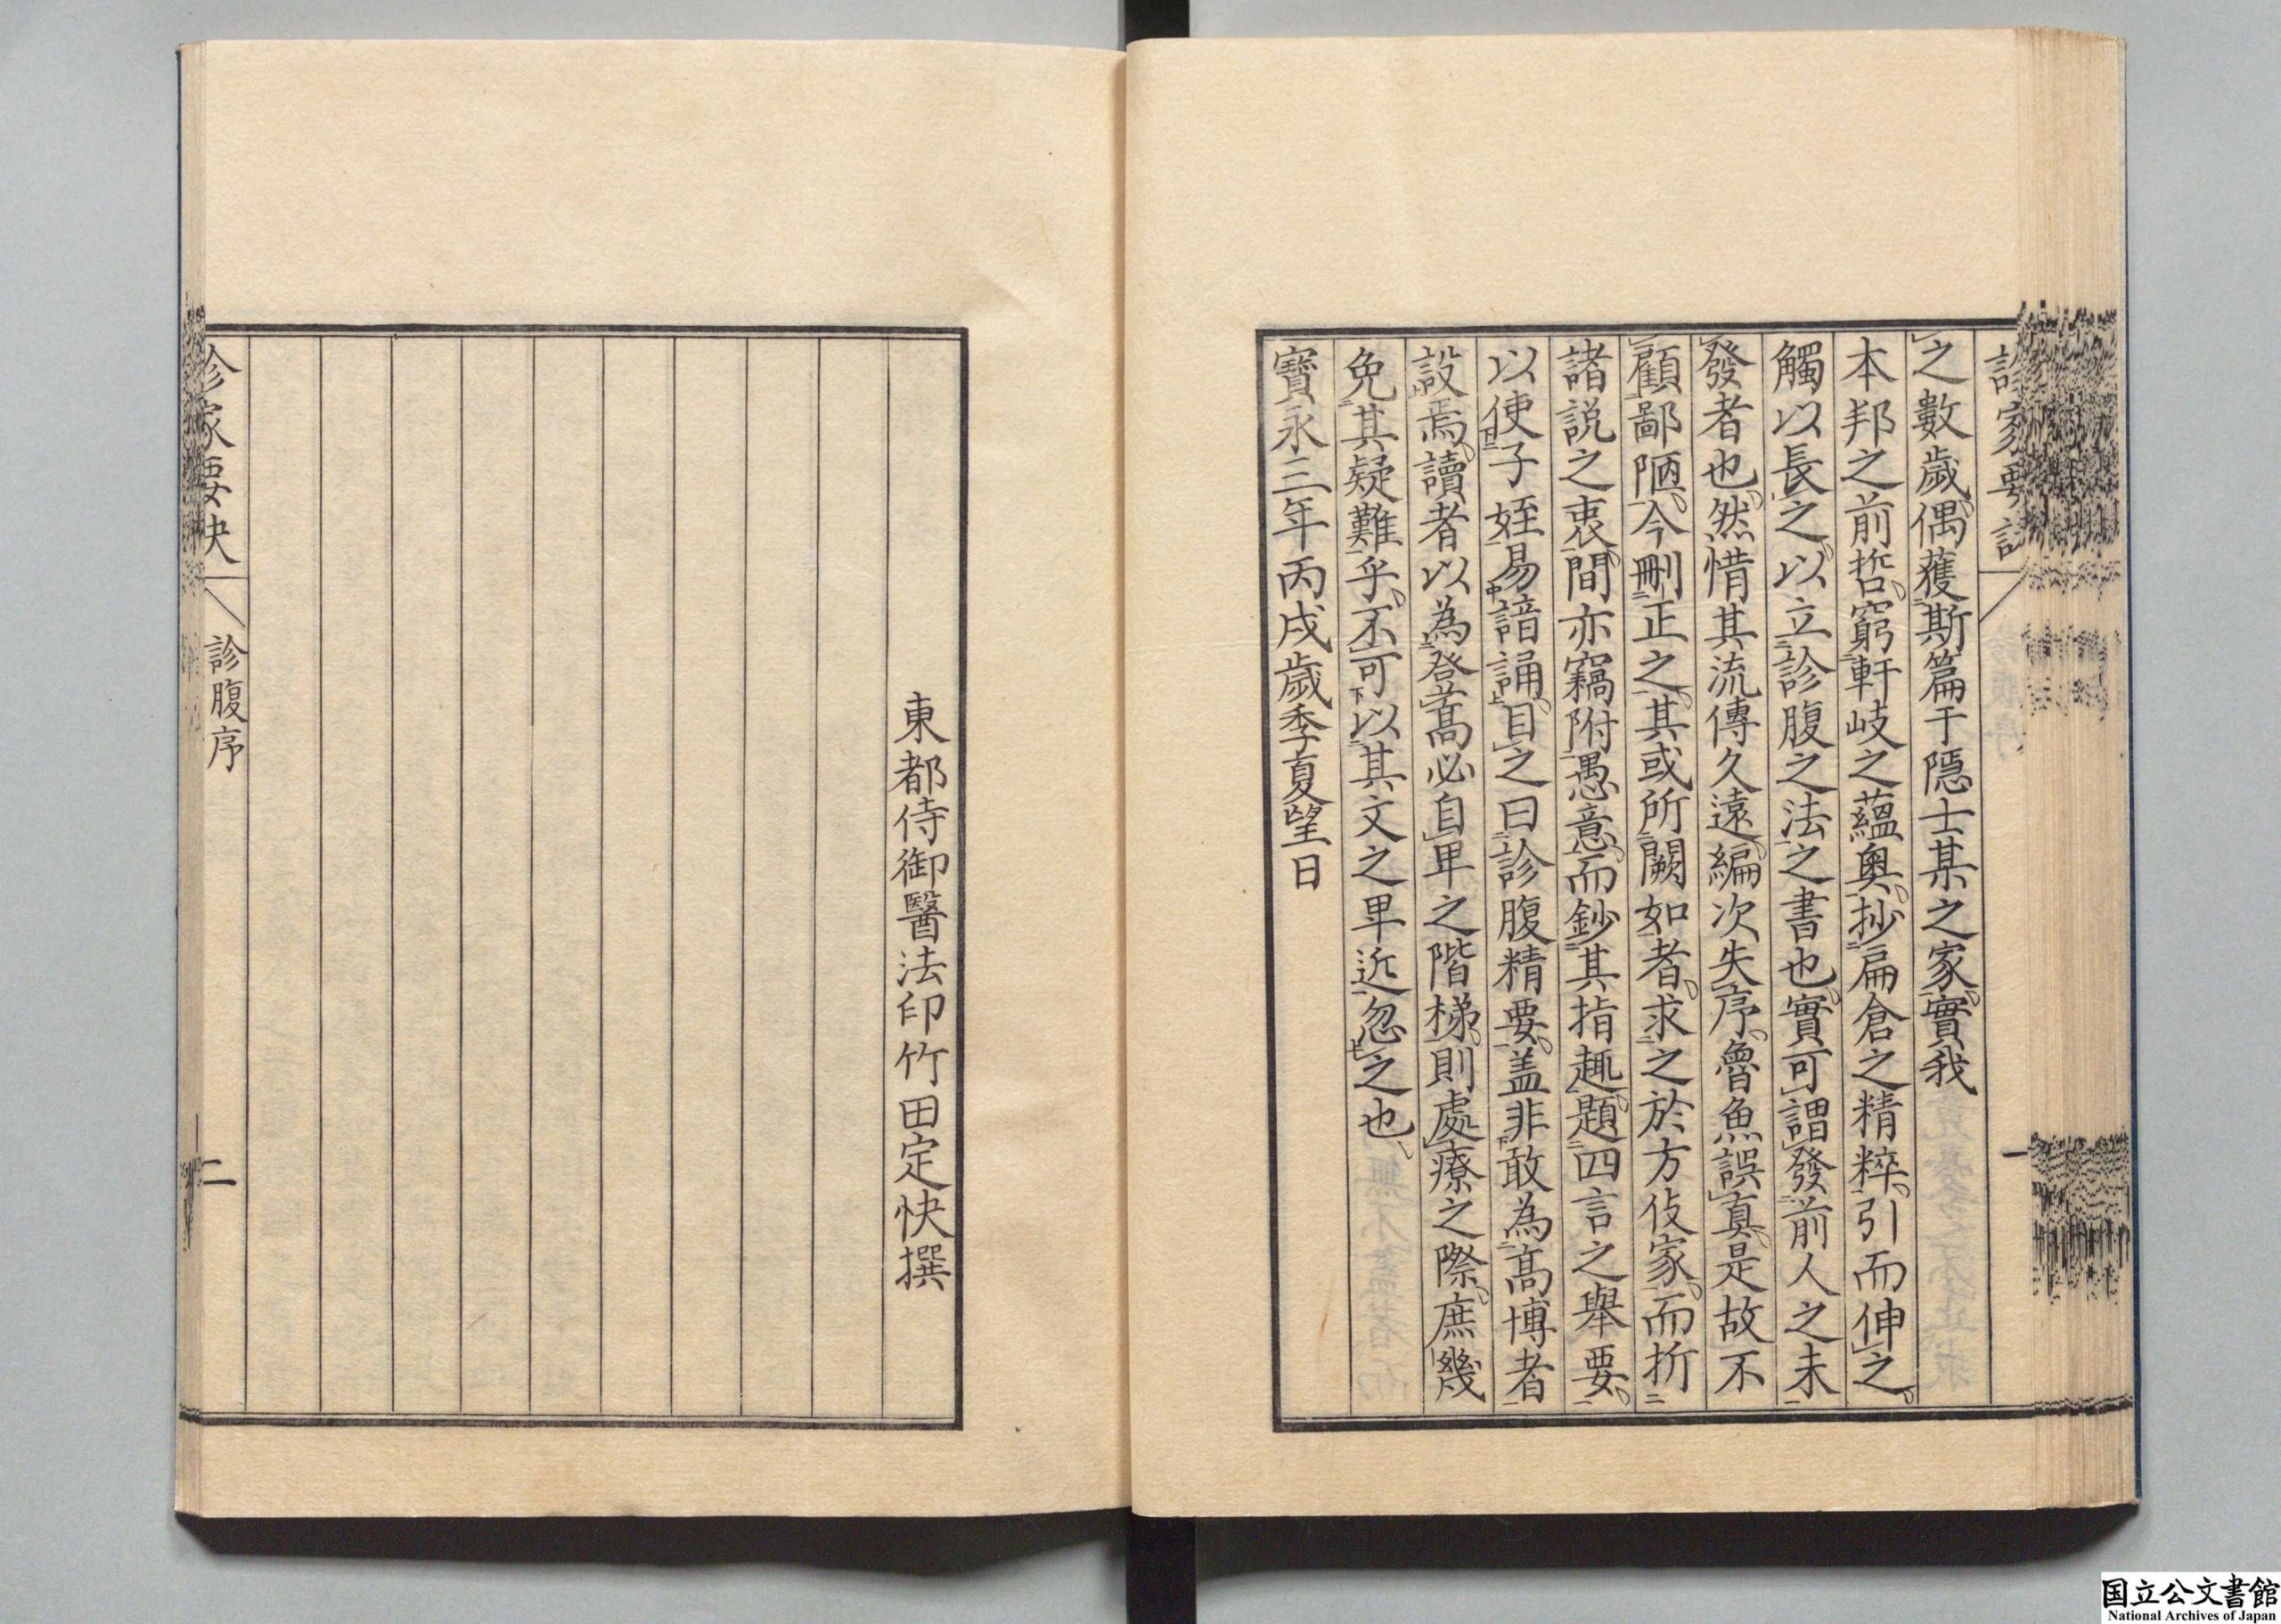 之數歲、偶獲斯篇于隱士某之家、實我
本邦之前哲、窮軒岐之蘊奧、抄扁倉之精粹、引而伸之、
觸以長之、以立診腹之法之書也、實可謂發前人之未
發者也、然惜其流傳久遠、編次失序、魯魚誤真、是故不
顧鄙陋、今刪正之、其或所闕如者、求之於方伎家、而折
諸說之衷、間亦竊附愚意、而鈔其指趣、題四言之舉要、
以使子姪易諳誦、目之曰診腹精要、盖非敢為高博者
設焉、讀者以為登高必自卑之階梯、則處療之際、庶幾
免其疑難乎、不可以其文之卑近忽之也、
寶永三年丙戌歲季夏望日
一
東都侍御醫法印竹田定快撰
診家要訣
診腹序
二
国立公文書館
National Archives of Japan